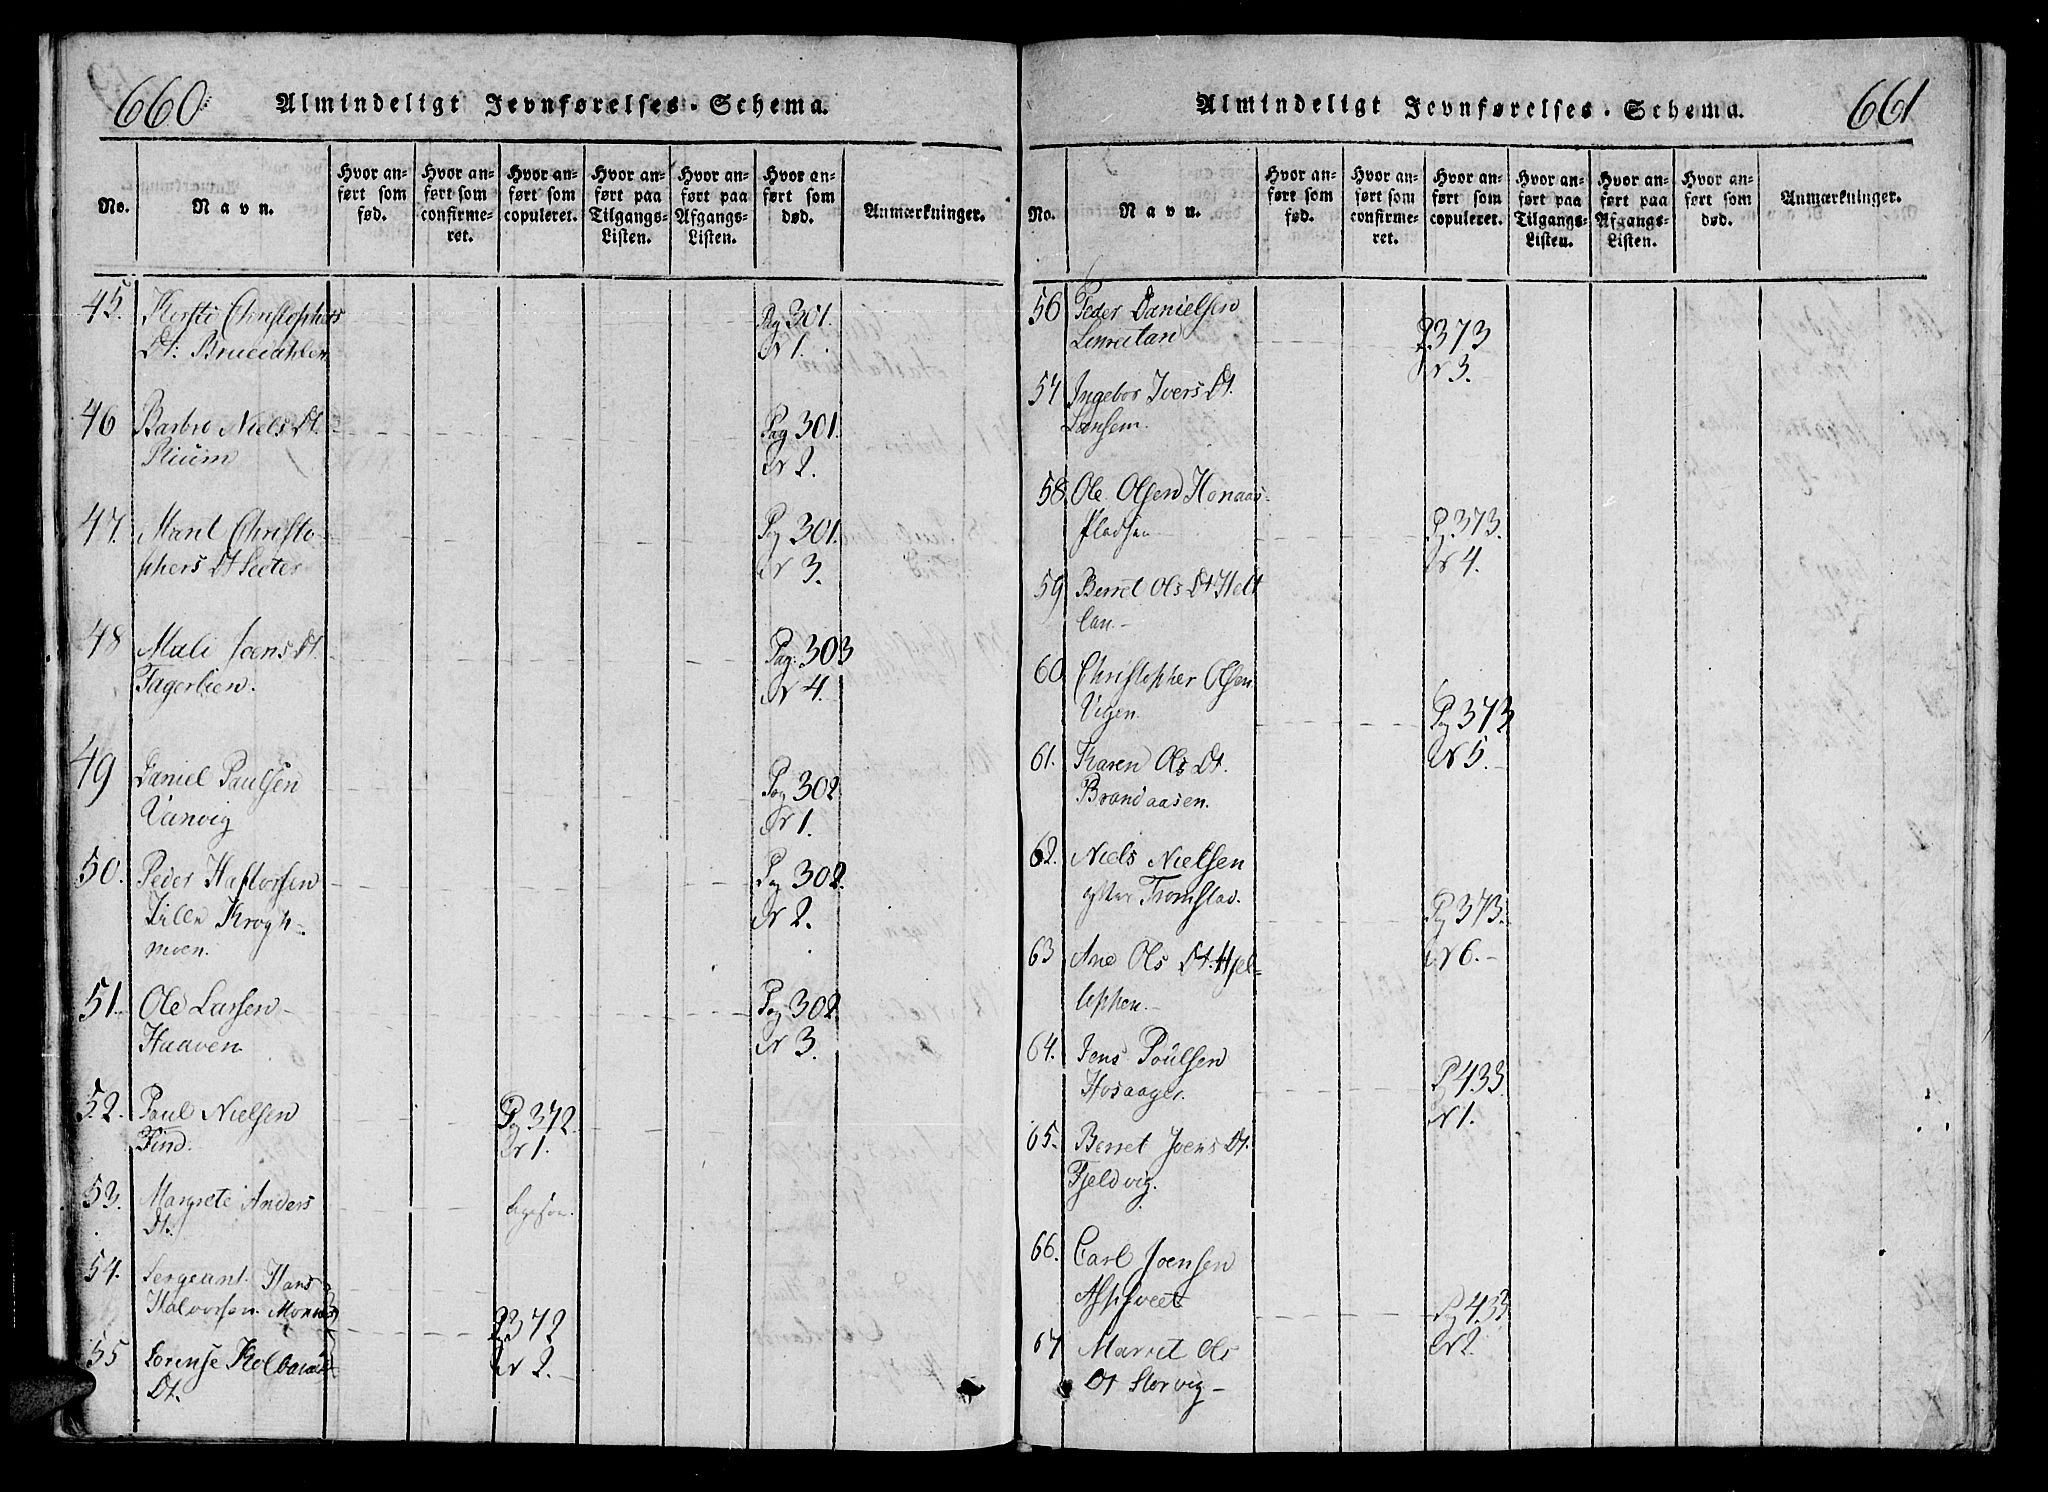 660 Almindeligt Jevnførelses-Schema.
No. Navn. Hvor anført som fød. Hvor anført som confirmeret. Hvor anført som copuleret. Hvor anført paa Tilgangs-Listen. Hvor anført paa Afgangs-Listen. Hvor anført som død. Anmærkninger.
45. Kersti Christophers Pag 301.
Dt: Nr 1.
46 Barbro Niels Dt. Pag 301.
Nr 2.
47. Marit Christo- Pag 301.
phers Dt Seeter Nr 3.
48 Mali Joens Dt. Pag. 303
Fagerlien. Nr 4.
49 Daniel Paulsen Pag 302
Vanvig Nr 1.
50. Peder Halvorsen Pag 302.
Lille Krogh- Nr 2.
moen.
51. Ole Larsen Pag 302.
Haaven Nr 3.
52. Paul Nielsen Pag 372.
Find. Nr 1.
53. Margrete Anders
Dt.
54. Sergeant Hans
Halvorsen P 372
55 Lorense Nr 2.
Dt.
661 Almindeligt Jevnførelses-Schema.
No. Navn. Hvor anført som fød. Hvor anført som confirmeret. Hvor anført som copuleret. Hvor anført paa Tilgangs-Listen. Hvor anført paa Afgangs-Listen. Hvor anført som død. Anmærkninger.
56 Peder Danielsen P 373
Nr 3.
57 Ingebor Ivers Dt.
Lænsem.
58. Ole Olsen Honaas- Pag 373.
Pladsen Nr 4.
59 Berret Ols Dt Helt
lan.
60. Christopher Olsen Pag 373
Vigen. Nr 5.
61. Karen Ols Dt.
Brandaasen.
62. Niels Nielsen
yttre Tromstad. Pag 373.
63 Ane Ols Dt. Hjel- Nr 6.
lephen.
64. Jens Poulsen P 433.
Hosaager. Nr 1.
65. Berret Joens Dt.
Fjeldvig.
66. Carl Joensen
Aspsveet Pag 433
67 Marret Ols Nr 2.
Dt Storvig